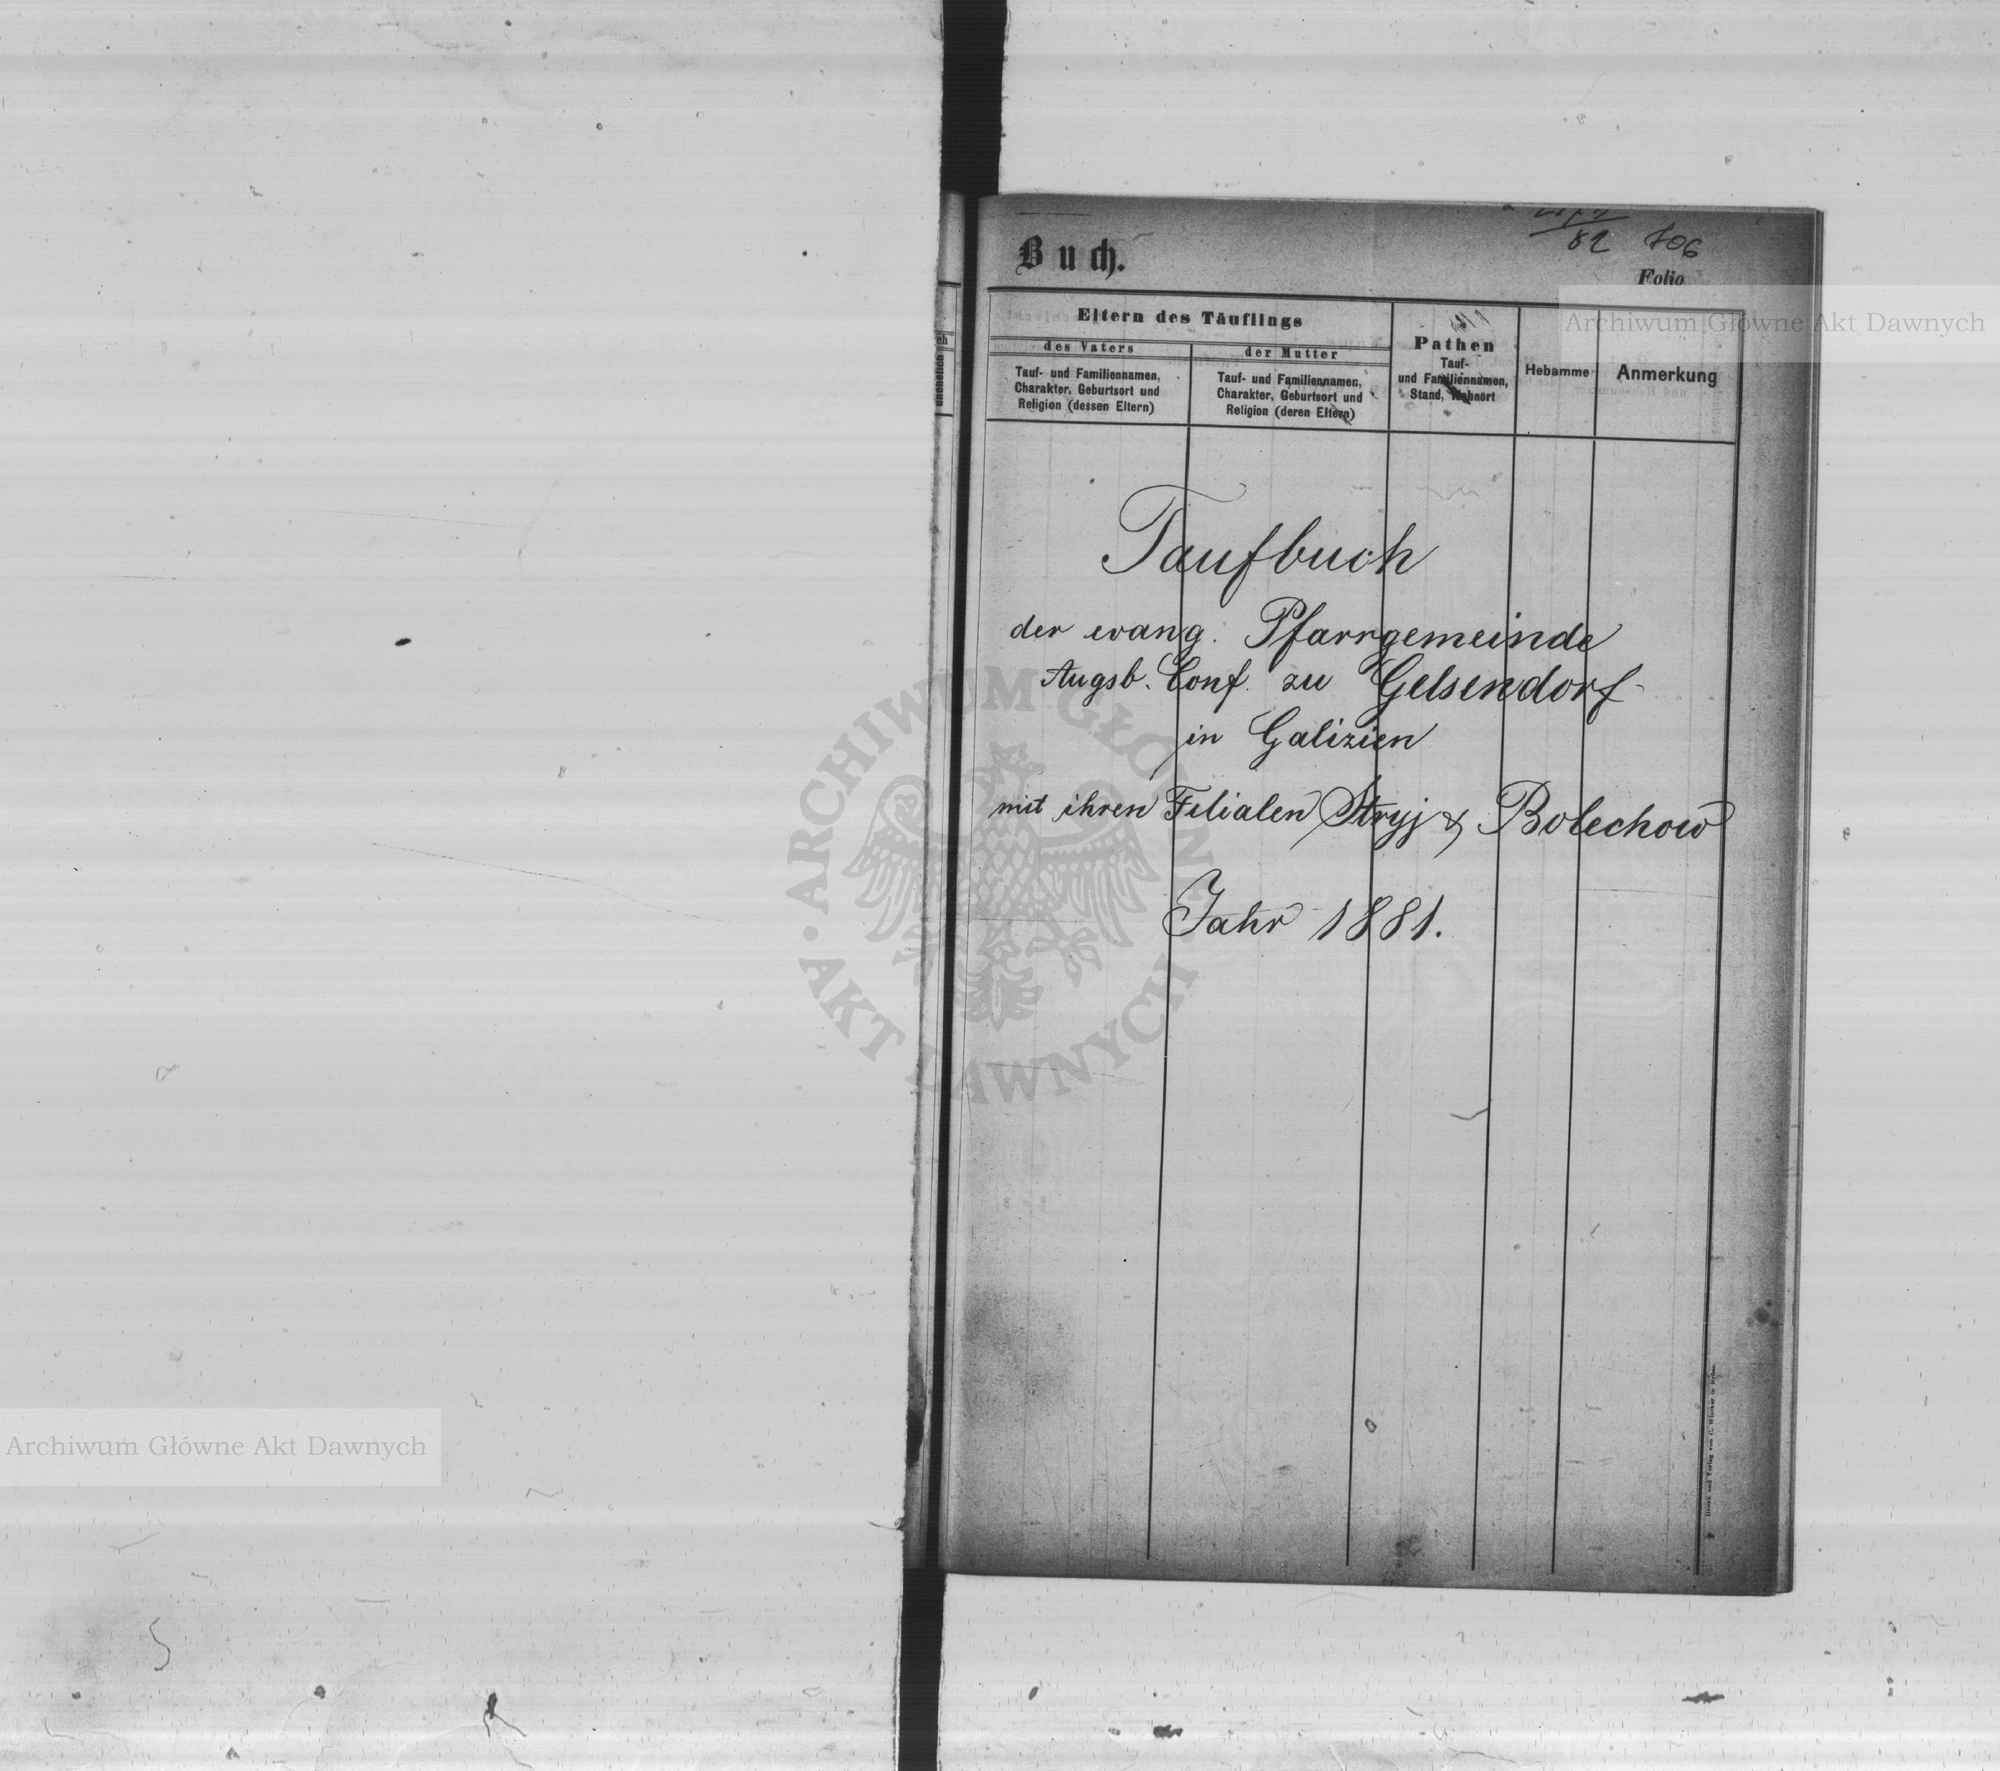 82 706
Buch.
Folio
Eltern des Täuflings
des Vaters
der Mutter
Tauf- und Familiennamen,
Charakter, Geburtsort und
Religion (dessen Eltern)
Tauf- und Familiennamen,
Charakter, Geburtsort und
Religion (deren Eltern)
Pathen
Tauf-
und Familiennamen,
Stand, Wohnort
Hebamme
Anmerkung
unehelich
Taufbuch
der evang. Pfarrgemeinde
Augsb. Conf. zu Gelsendorf
in Galizien
mit ihren Filialen Stryj & Bolechow
Jahr 1881.
Druck und Verlag von C.
Archiwum Główne Akt Dawnych
ARCHIWUM GŁÓWNE AKT DAWNYCH
Archiwum Główne Akt Dawnych